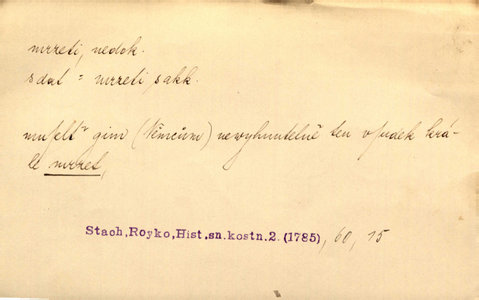 mrzeti, nedok.
sdat = mrzeti sakk.
muselt gim (Němcům) newyhnutelně ten osudek krá-
le mrzet,
Stach, Royko, Hist. sn. kostn. 2. (1785), 60, 15